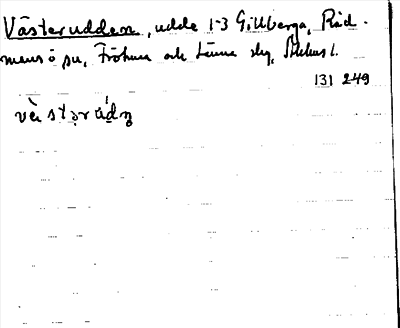 Västerudden, udde 1-3 Gillberga, Råd-
mansö sn, Fröhun och Länna slg, Sthms l.
131 249
vè̀stərúdn̥